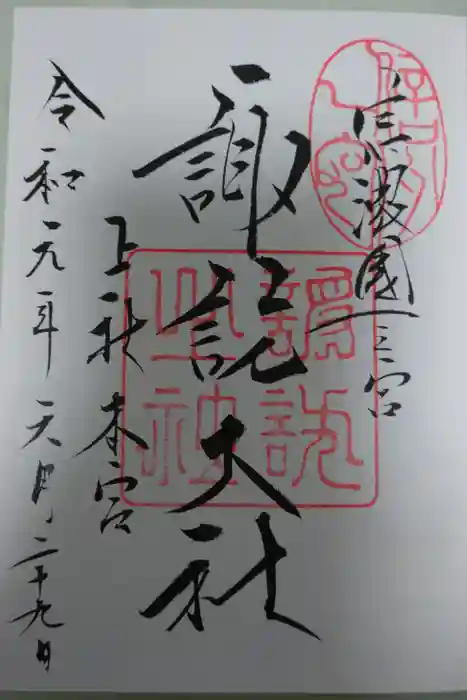 信濃國一之宮
諏訪大社
上社 本宮
令和元年六月二十九日